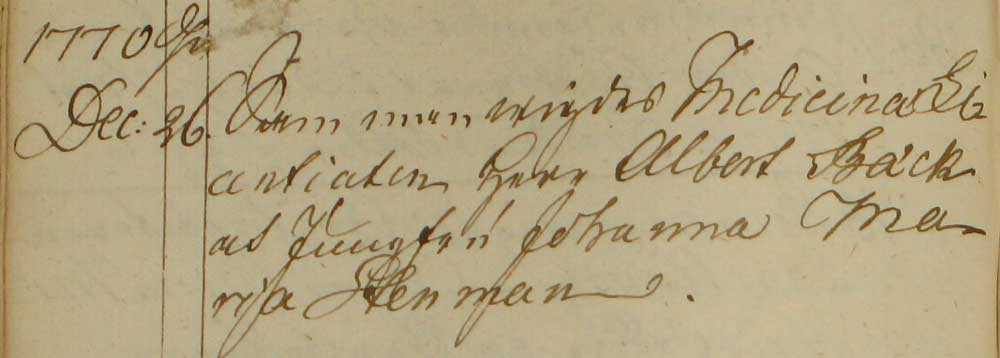 1770
Dec: 26. Samman vigdes Medicinæ Li
centiaten Herr Albert Bäck
at Jungfru Johanna Ma-
ria Stenman.